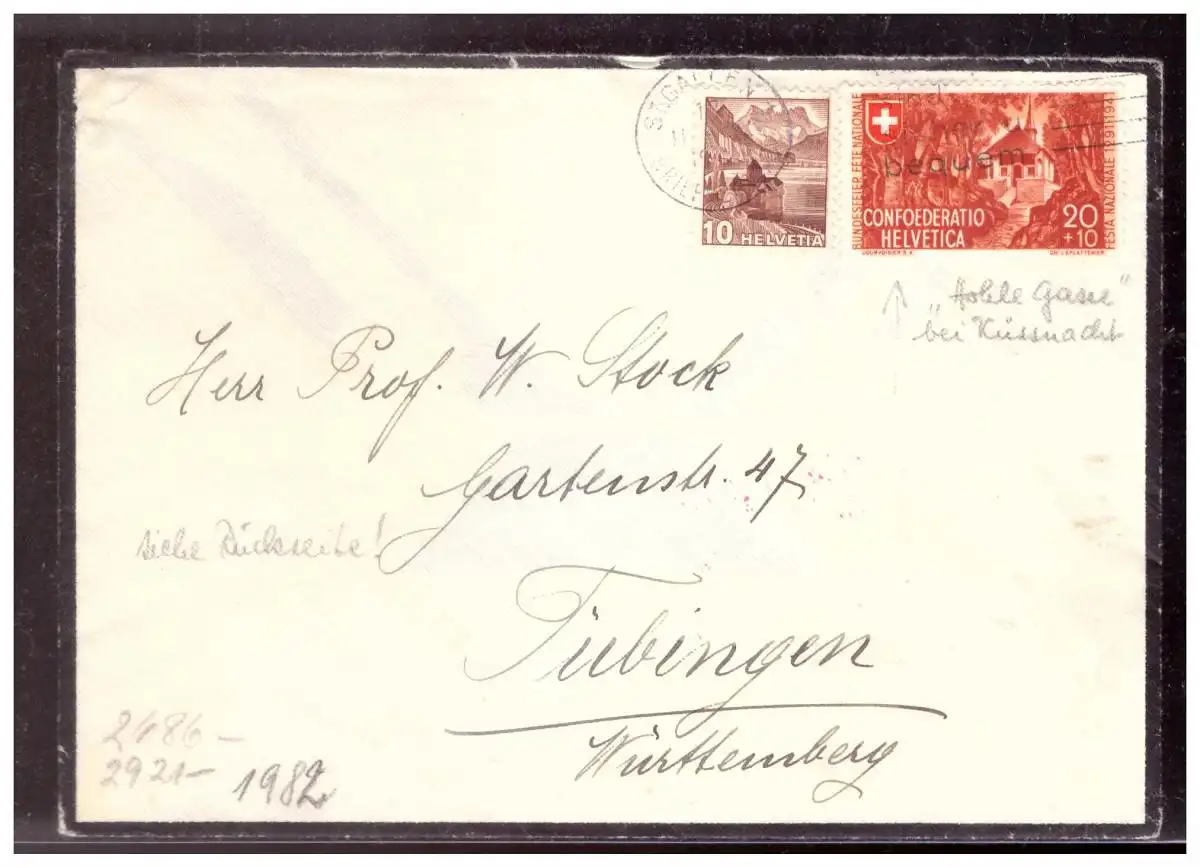 ST. GALLEN
10 HELVETIA
BUNDESFEIER FETE NATIONALE
bequem
CONFOEDERATIO
HELVETICA
20
+10
FESTA NAZIONALE 1291·1941
COURVOISIER S.A.
CH. L'EPLATTENIER
„Hohle Gasse"
bei Küssnacht
Herr Prof. W. Stock
Gartenstr. 47
siehe Rückseite!
Tübingen
Württemberg
2486-
2921-
1982